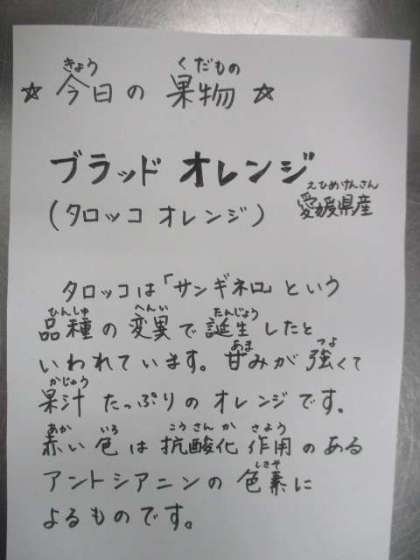 きょう くだもの
☆ 今日の 果物 ☆
ブラッド オレンジ
えひめけんさん
(タロッコ オレンジ) 愛媛県産
タロッコは「サンギネロ」という
ひんしゅ へんい たんじょう
品種の変異で誕生したと
あま つよ
いわれています。甘みが強くて
かじゅう
果汁たっぷりのオレンジです。
あか いろ こうさんか さよう
赤い色は抗酸化作用のある
しきそ
アントシアニンの色素に
よるものです。